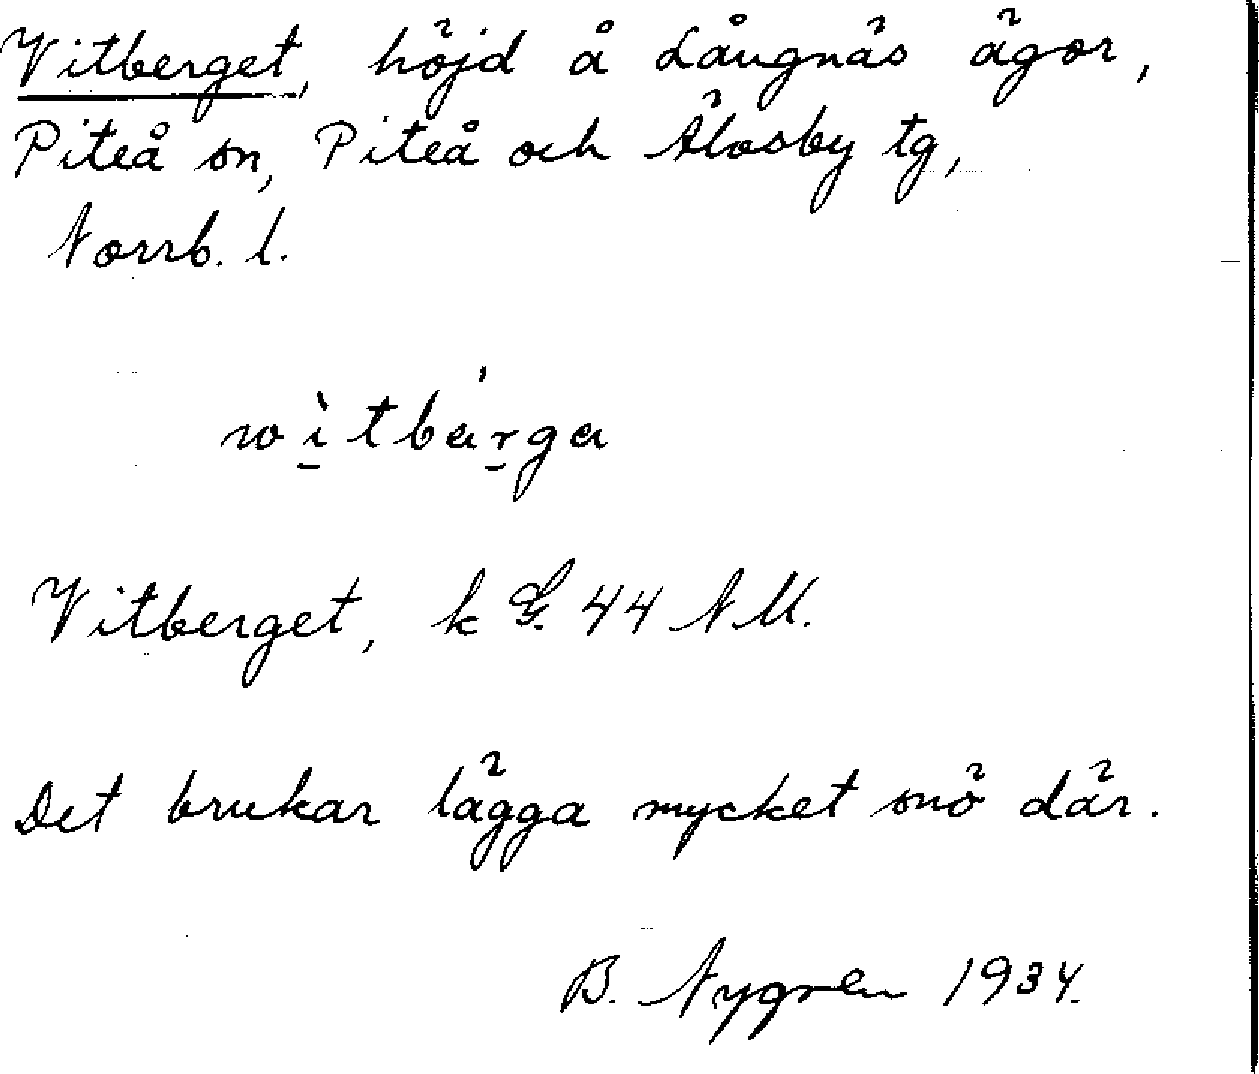 Vitberget, höjd å Långnäs ägor,
Piteå sn, Piteå och Älvsby tg,
Norrb. l.
wi̠tbar̠ga
Vitberget, k G. 44 NU.
Det brukar lägga mycket snö där.
B. Nygren 1934.